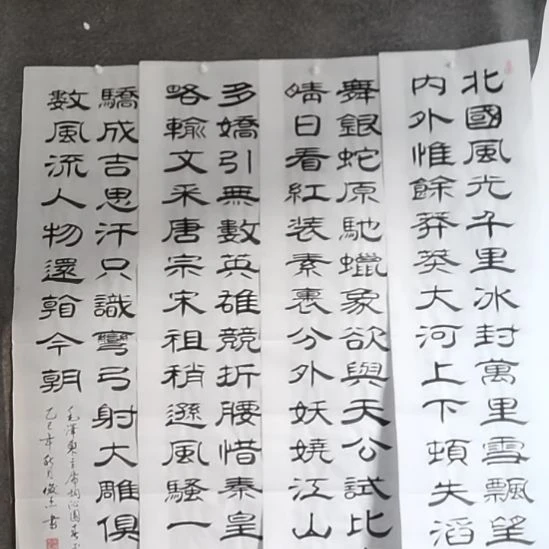 北國風光千里冰封萬里雪飄望
内外惟餘莽莽大河上下頓失滔
舞銀蛇原馳蠟象欲與天公試比
晴日看紅装素裹分外妖嬈江山
多嬌引無數英雄競折腰惜秦皇
略輸文采唐宗宋祖稍遜風騷一
驕成吉思汗只識彎弓射大雕俱
数風流人物還看今朝
毛澤東主席詞沁園春
乙巳年秋月